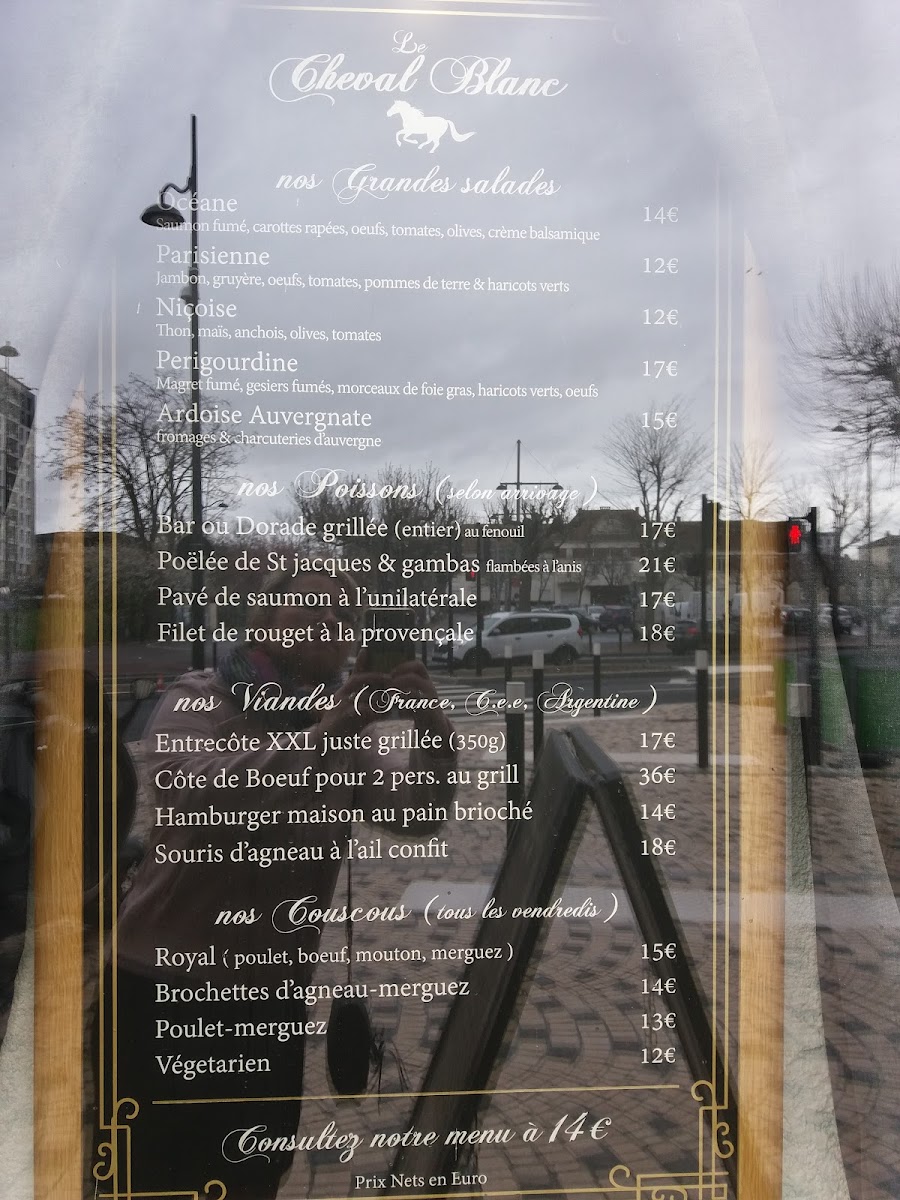 Le
Cheval Blanc
nos Grandes salades
Océane 14€
Saumon fumé, carottes rapées, oeufs, tomates, olives, crème balsamique
Parisienne 12€
Jambon, gruyère, oeufs, tomates, pommes de terre & haricots verts
Niçoise 12€
Thon, maïs, anchois, olives, tomates
Perigourdine 17€
Magret fumé, gesiers fumés, morceaux de foie gras, haricots verts, oeufs
Ardoise Auvergnate 15€
fromages & charcuteries d'auvergne
nos Poissons (selon arrivage)
Bar ou Dorade grillée (entier) au fenouil 17€
Poëlée de St jacques & gambas flambées à l'anis 21€
Pavé de saumon à l'unilatérale 17€
Filet de rouget à la provençale 18€
nos Viandes (France, C.e.e, Argentine)
Entrecôte XXL juste grillée (350g) 17€
Côte de Boeuf pour 2 pers. au grill 36€
Hamburger maison au pain brioché 14€
Souris d'agneau à l'ail confit 18€
nos Couscous (tous les vendredis)
Royal ( poulet, boeuf, mouton, merguez ) 15€
Brochettes d'agneau-merguez 14€
Poulet-merguez 13€
Végetarien 12€
Consultez notre menu à 14€
Prix Nets en Euro